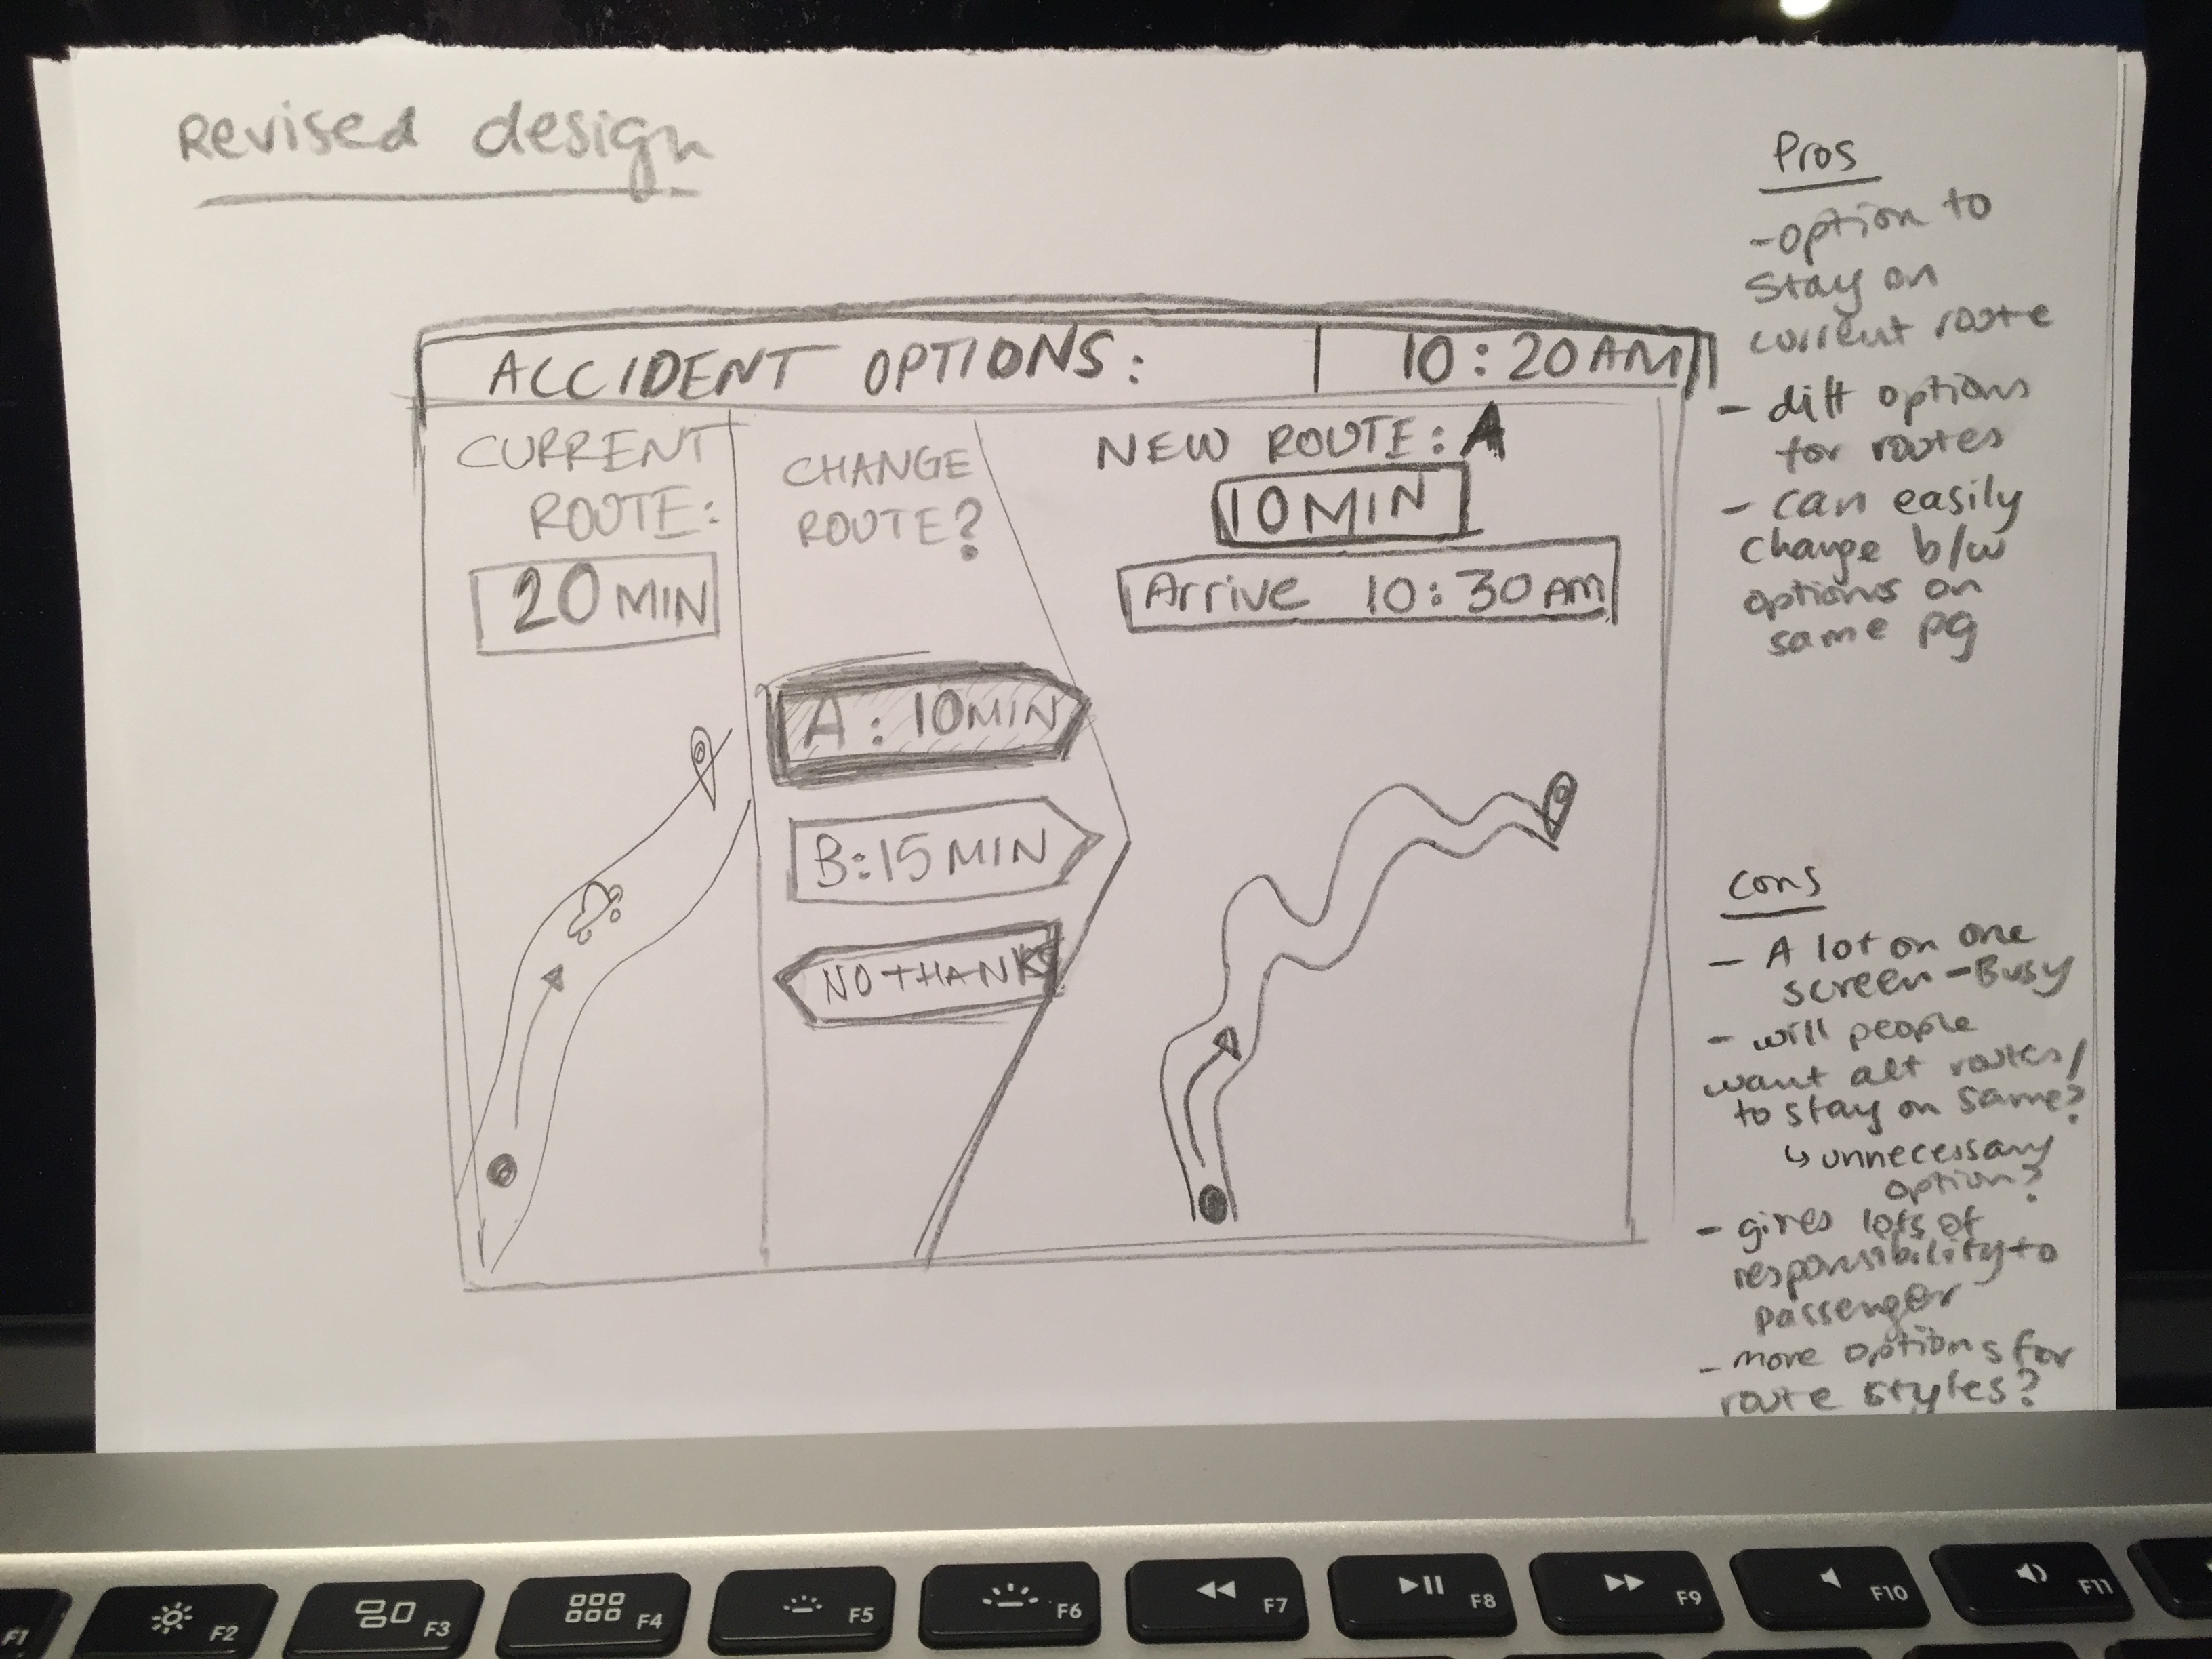 Revised design
ACCIDENT OPTIONS:
10:20AM
CURRENT
ROUTE:
20 MIN
CHANGE
ROUTE?
A: 10MIN
B: 15 MIN
NO THANKS
NEW ROUTE: A
10MIN
Arrive 10:30 AM
Pros
- option to
stay on
current route
- diff options
for routes
- can easily
change b/w
options on
same pg
Cons
- A lot on one
screen - Busy
- will people
want alt routes/
to stay on same?
↳ unnecessary
option?
- gives lots of
responsibility to
passenger
- more options for
route styles?
F1
F2
F3
F4
F5
F6
F7
F8
F9
F10
F11